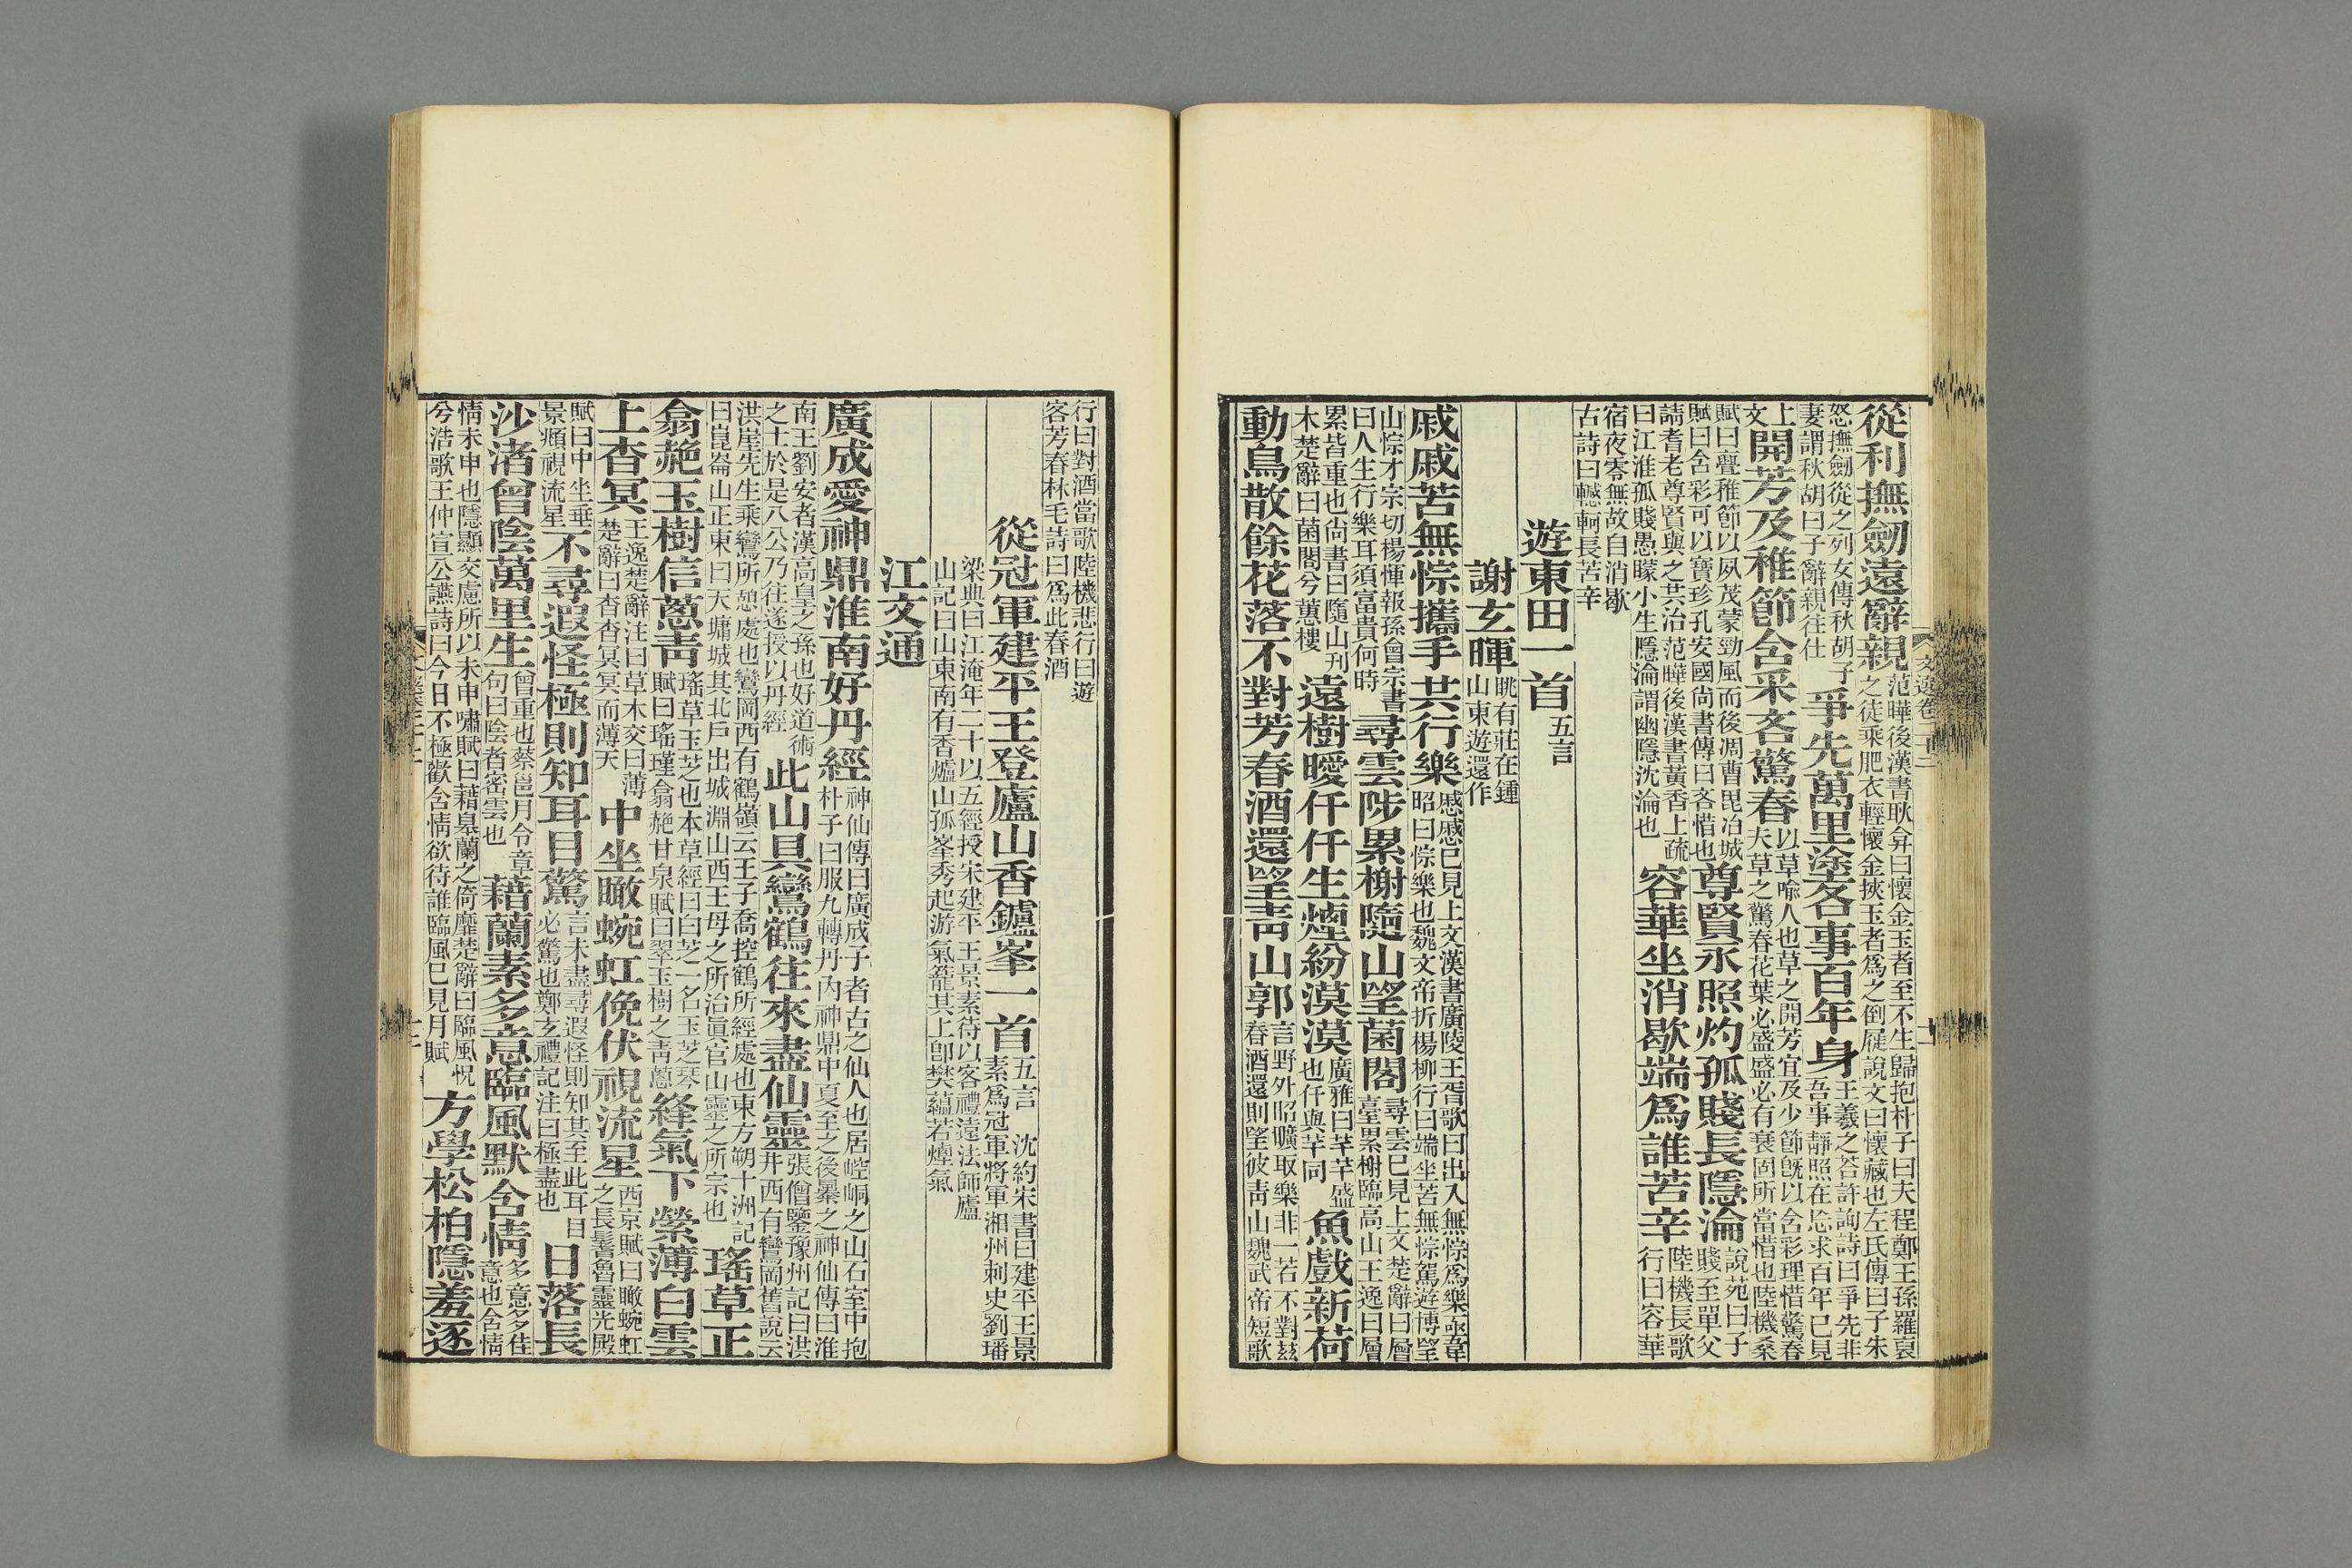 從利撫劒遠辭親范曄後漢書耿弇曰懷金玉者至不生歸抱朴子曰夫程鄭王孫羅裒之徒乘肥衣輕懷金挾玉者爲之倒屣說文曰懷藏也左氏傳曰子朱
怒撫劒從之列女傳秋胡子妻謂秋胡曰子辭親往仕爭先萬里塗各事百年身王羲之荅許詢詩曰爭先非吾事靜照在忘求百年已見
上文開芳及稚節含采吝驚春以草喻人也草之開芳宜及少節旣以含彩理惜驚春夫草之驚春花葉必盛盛必有衰固所當惜也陸機桑
賦曰亹稚節以夙茂蒙勁風而後凋曹毘冶城賦曰含彩可以實珍孔安國尚書傳曰吝惜也尊賢永照灼孤賤長隱淪說苑曰子賤至單父
請耆老尊賢與之共治范曄後漢書黃香上疏曰江淮孤賤愚矇小生隱淪謂幽隱沈淪也容華坐消歇端爲誰苦辛陸機長歌行曰容華
宿夜零無故自消歇古詩曰轗軻長苦辛
遊東田一首五言
謝玄暉眺有莊在鍾山東遊還作
戚戚苦無悰攜手共行樂戚戚已見上文漢書廣陵王胥歌曰出入無悰爲樂亟韋昭曰悰樂也魏文帝折楊柳行曰端坐苦無悰駕遊博望
山悰才宗切楊惲報孫會宗書曰人生行樂耳須富貴何時尋雲陟累榭隨山望菌閣尋雲已見上文楚辭曰層臺累榭臨高山王逸曰層
累皆重也尚書曰隨山刋木楚辭曰菌閣兮蕙樓遠樹曖仟仟生煙紛漠漠廣雅曰芊芊盛也仟與芊同魚戲新荷
動鳥散餘花落不對芳春酒還望靑山郭言野外昭曠取樂非一若不對玆春酒還則望彼靑山魏武帝短歌
行曰對酒當歌陸機悲行曰遊客芳春林毛詩曰爲此春酒
從冠軍建平王登廬山香鑪峯一首五言沈約宋書曰建平王景素爲冠軍將軍湘州刺史劉璠
梁典曰江淹年二十以五經授宋建平王景素待以客禮遠法師廬山記曰山東南有香爐山孤峯秀起游氣籠其上卽樊蘊若煙氣
江文通
廣成愛神鼎淮南好丹經神仙傳曰廣成子者古之仙人也居崆峒之山石室中抱朴子曰服九轉丹內神鼎中夏至之後暴之神仙傳曰淮
南王劉安者漢高皇之孫也好道術之士於是八公乃往遂授以丹經此山具鸞鶴往來盡仙靈張僧鑒豫州記曰洪井西有鸞岡舊說云
洪崖先生乘鸞所憩處也鸞岡西有鶴嶺云王子喬控鶴所經處也東方朔十洲記曰崑崙山正東曰天墉城其北戶出城淵山西王母之所治眞官山靈之所宗也瑤草正
翕赩玉樹信蔥靑瑤草玉芝也本草經曰白芝一名玉芝琴賦曰瑤瑾翕赩甘泉賦曰翠玉樹之靑蔥絳氣下縈薄白雲
上杳冥王逸楚辭注曰草木交曰薄楚辭曰杳杳冥冥而薄天中坐瞰蜿虹俛伏視流星西京賦曰瞰蜿虹之長鬐魯靈光殿
賦曰中坐垂景頫視流星不尋遐怪極則知耳目驚言未盡尋遐怪則知其至此耳目必驚也鄭玄禮記注曰極盡也日落長
沙渚曾陰萬里生曾重也蔡邕月令章句曰陰者密雲也藉蘭素多意臨風默含情多意多佳意也含情
情未申也隱顯交慮所以未申嘯賦曰藉皐蘭之倚靡楚辭曰臨風怳兮浩歌王仲宣公讌詩曰今日不極歡含情欲待誰臨風已見月賦方學松柏隱羞逐